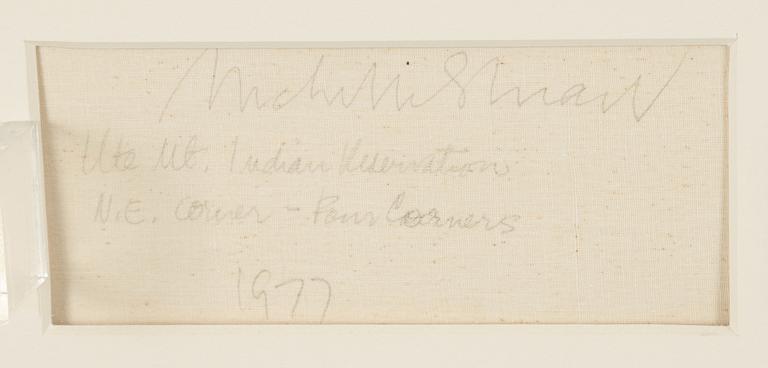 Michelle Stuart
Ute Mt. Indian Reservation
N.E. Corner - Four Corners
1977